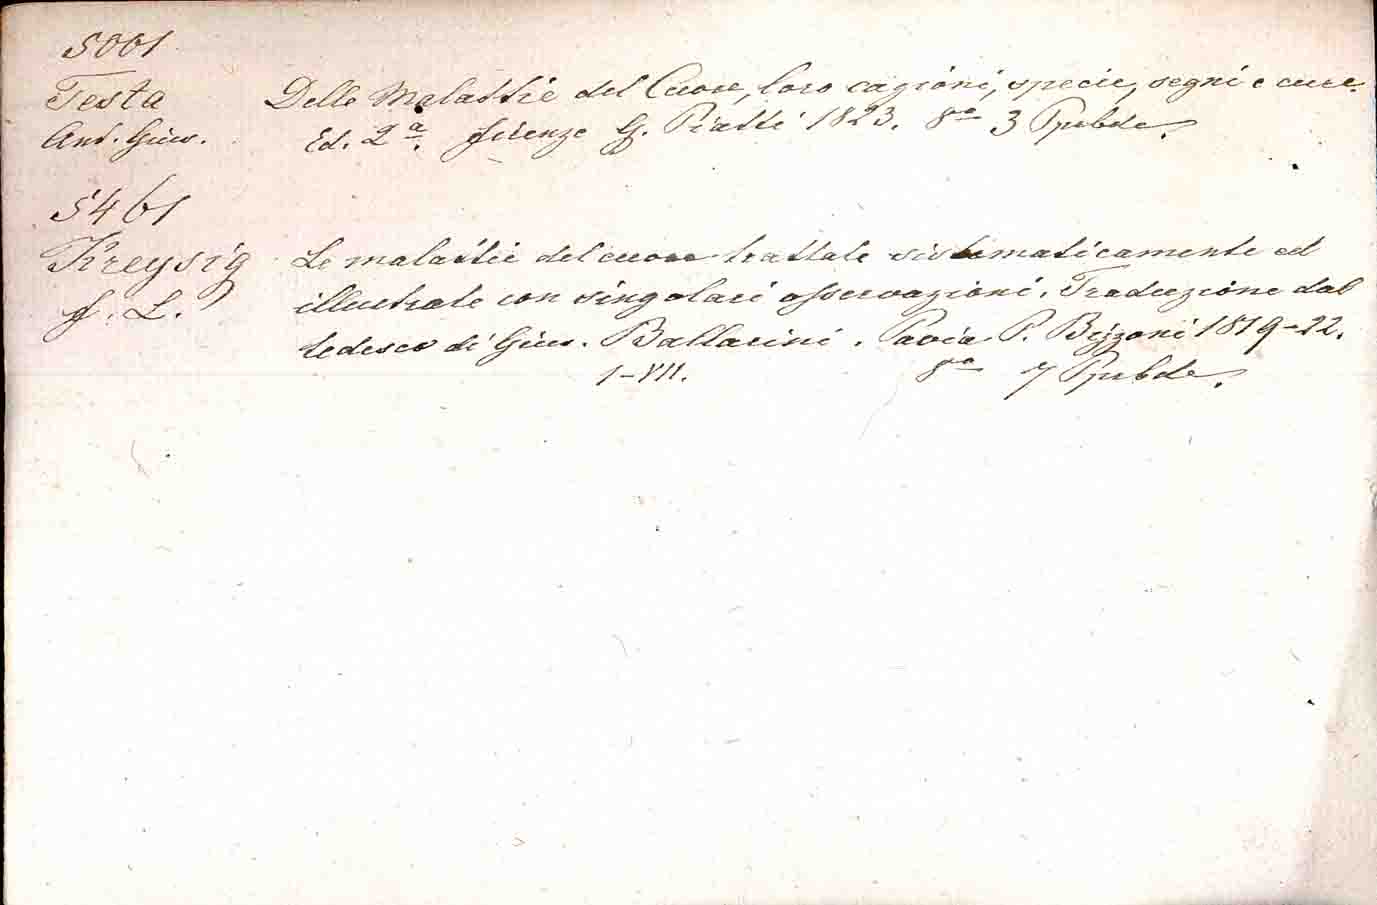 5061
Testa Delle Malattie del Cuore, loro cagioni, specie, segni e cure.
Ant. Gius. Ed. 2a. Firenze G. Piatti 1823. 8vo 3 Ppbde.
5461
Kreysig Le malattie del cuore trattate sistematicamente ed
F. L. illustrate con singolari osservazioni. Traduzione dal
tedesco di Gius. Ballarini. Pavia P. Bizzoni 1819-22.
I-VII. 8vo 7 Ppbde.